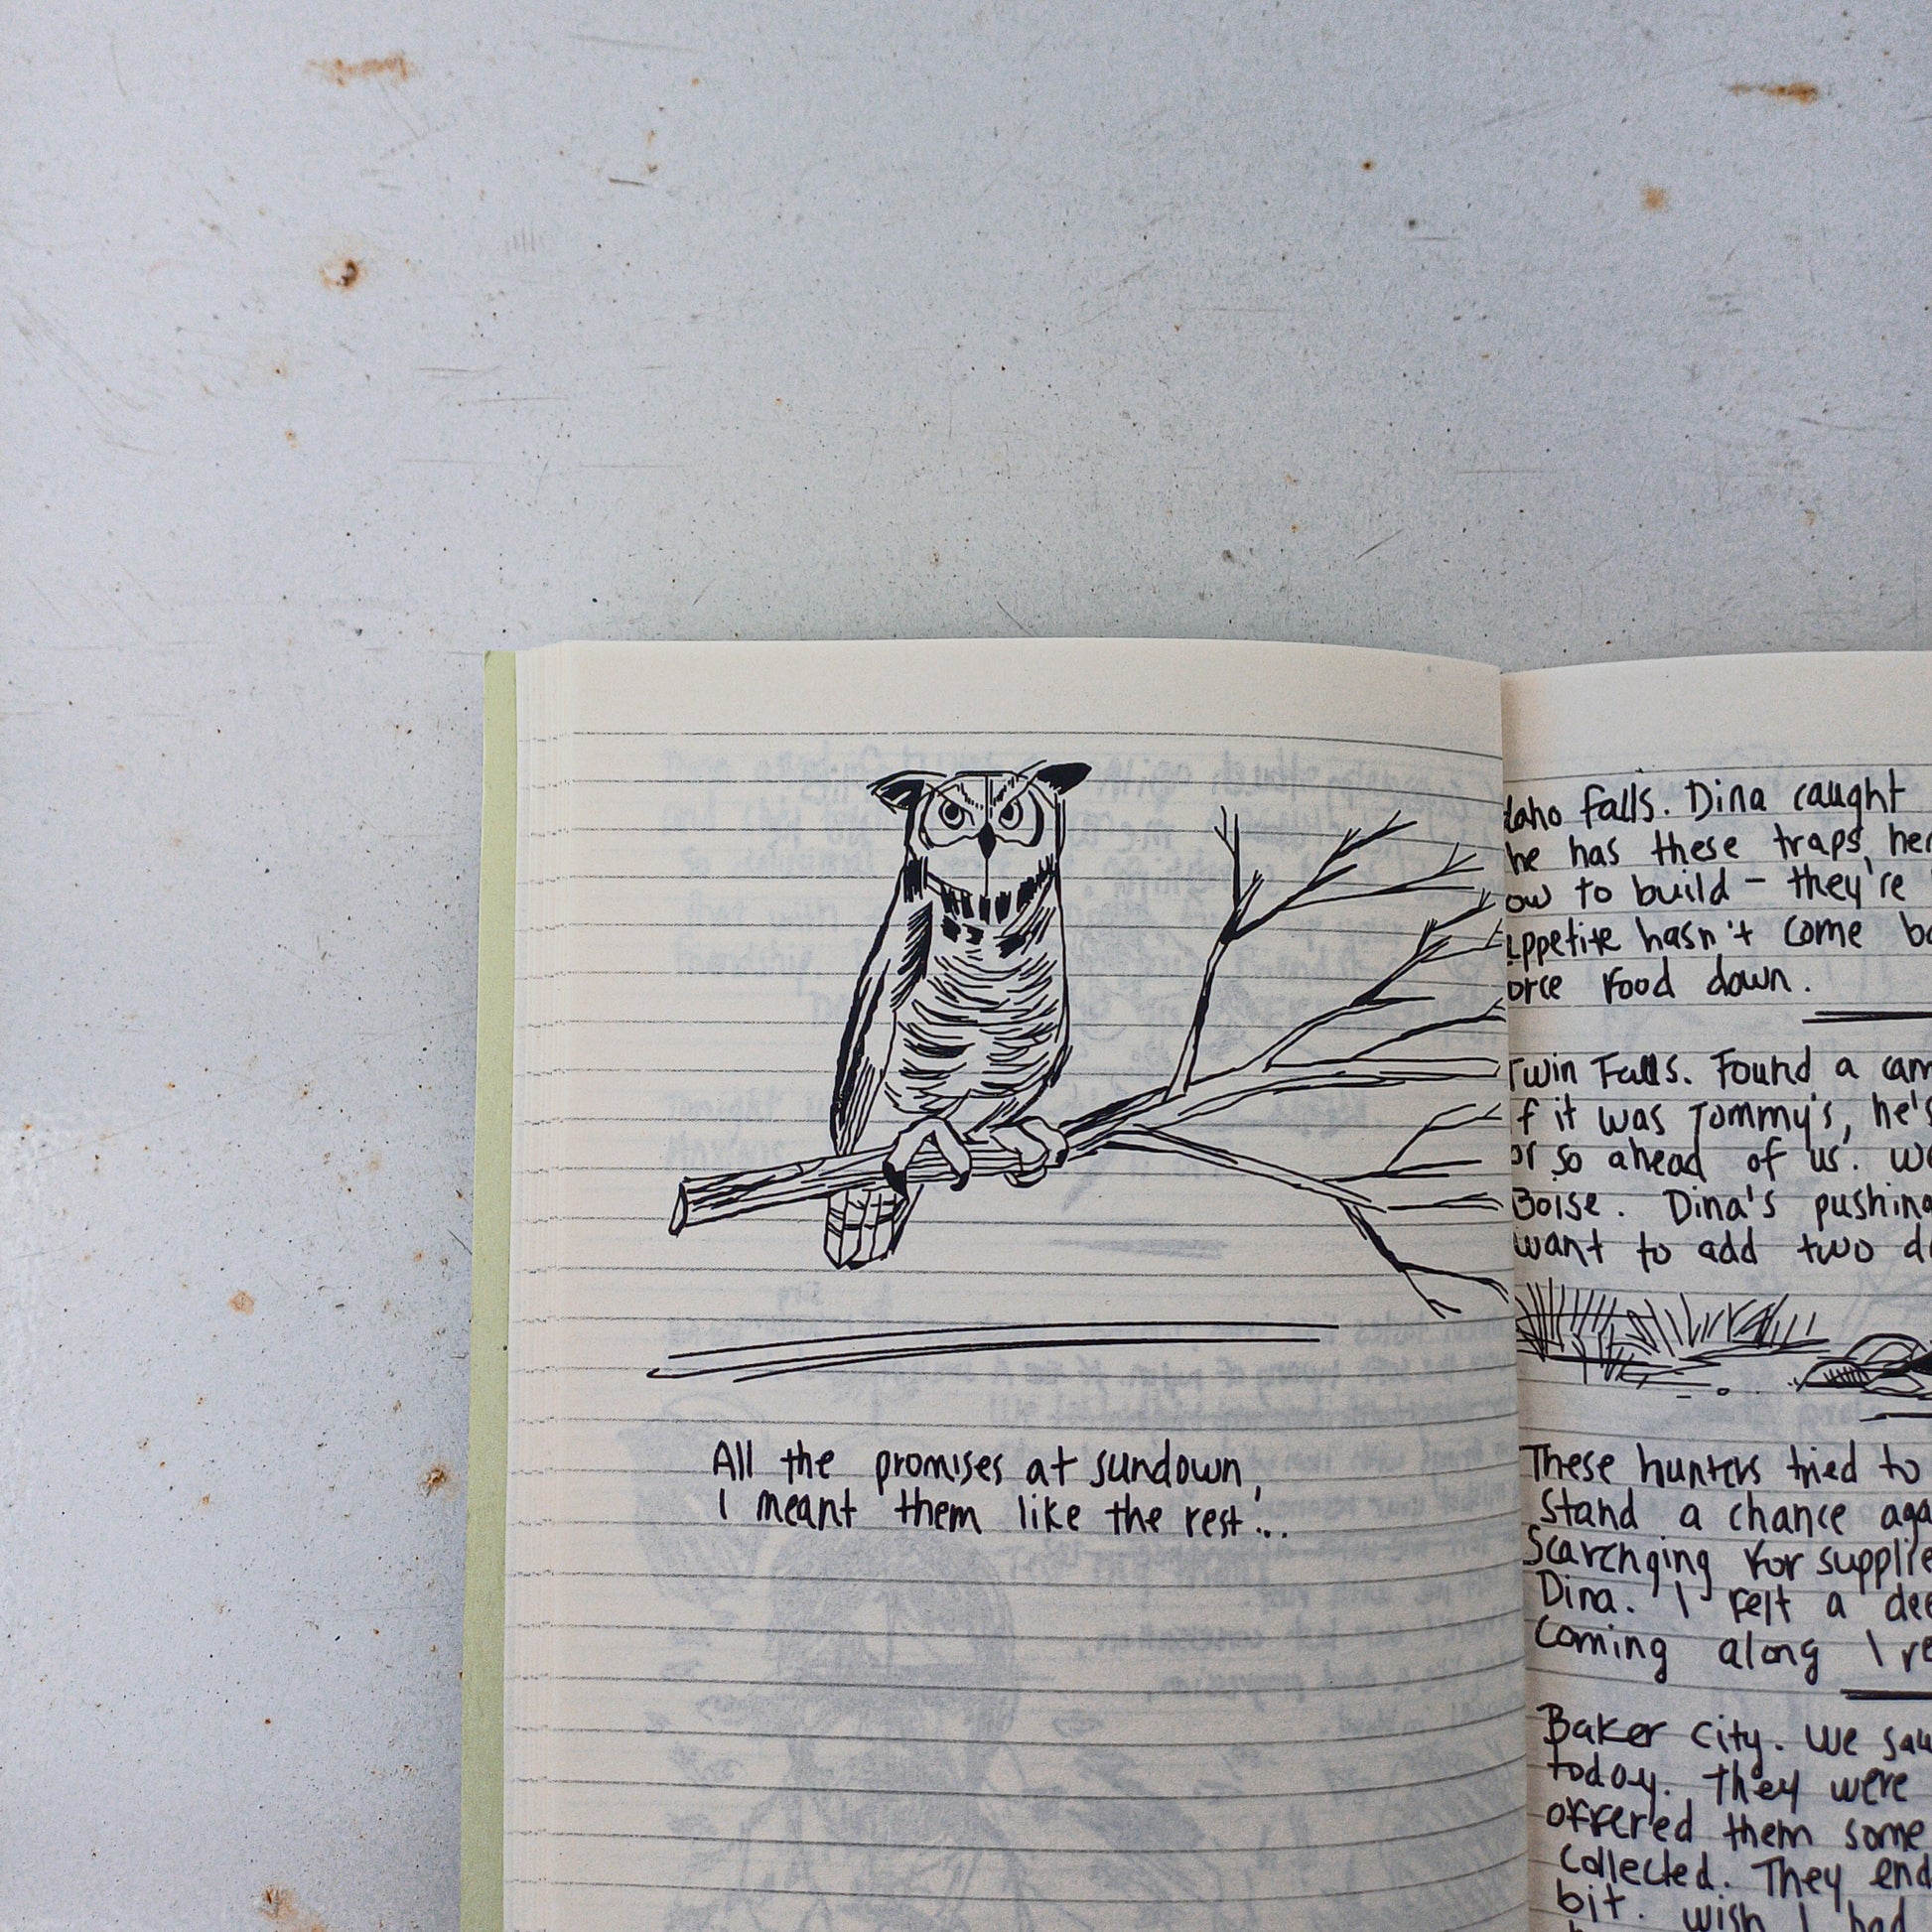 All the promises at sundown,
I meant them like the rest...
daho Falls. Dina caught
he has these traps, her
ow to build - they're
ppetite hasn't come
orce food down.
Twin Falls. Found a
f it was Tommy's, he's
or so ahead of us. We
Boise. Dina's pushing
want to add two
These hunters tried to
Stand a chance aga
Scarenging for supplie
Dina. I felt a dee
coming along I re
Baker City. We saw
today. They were
offered them some
collected. They end
bit. wish I had